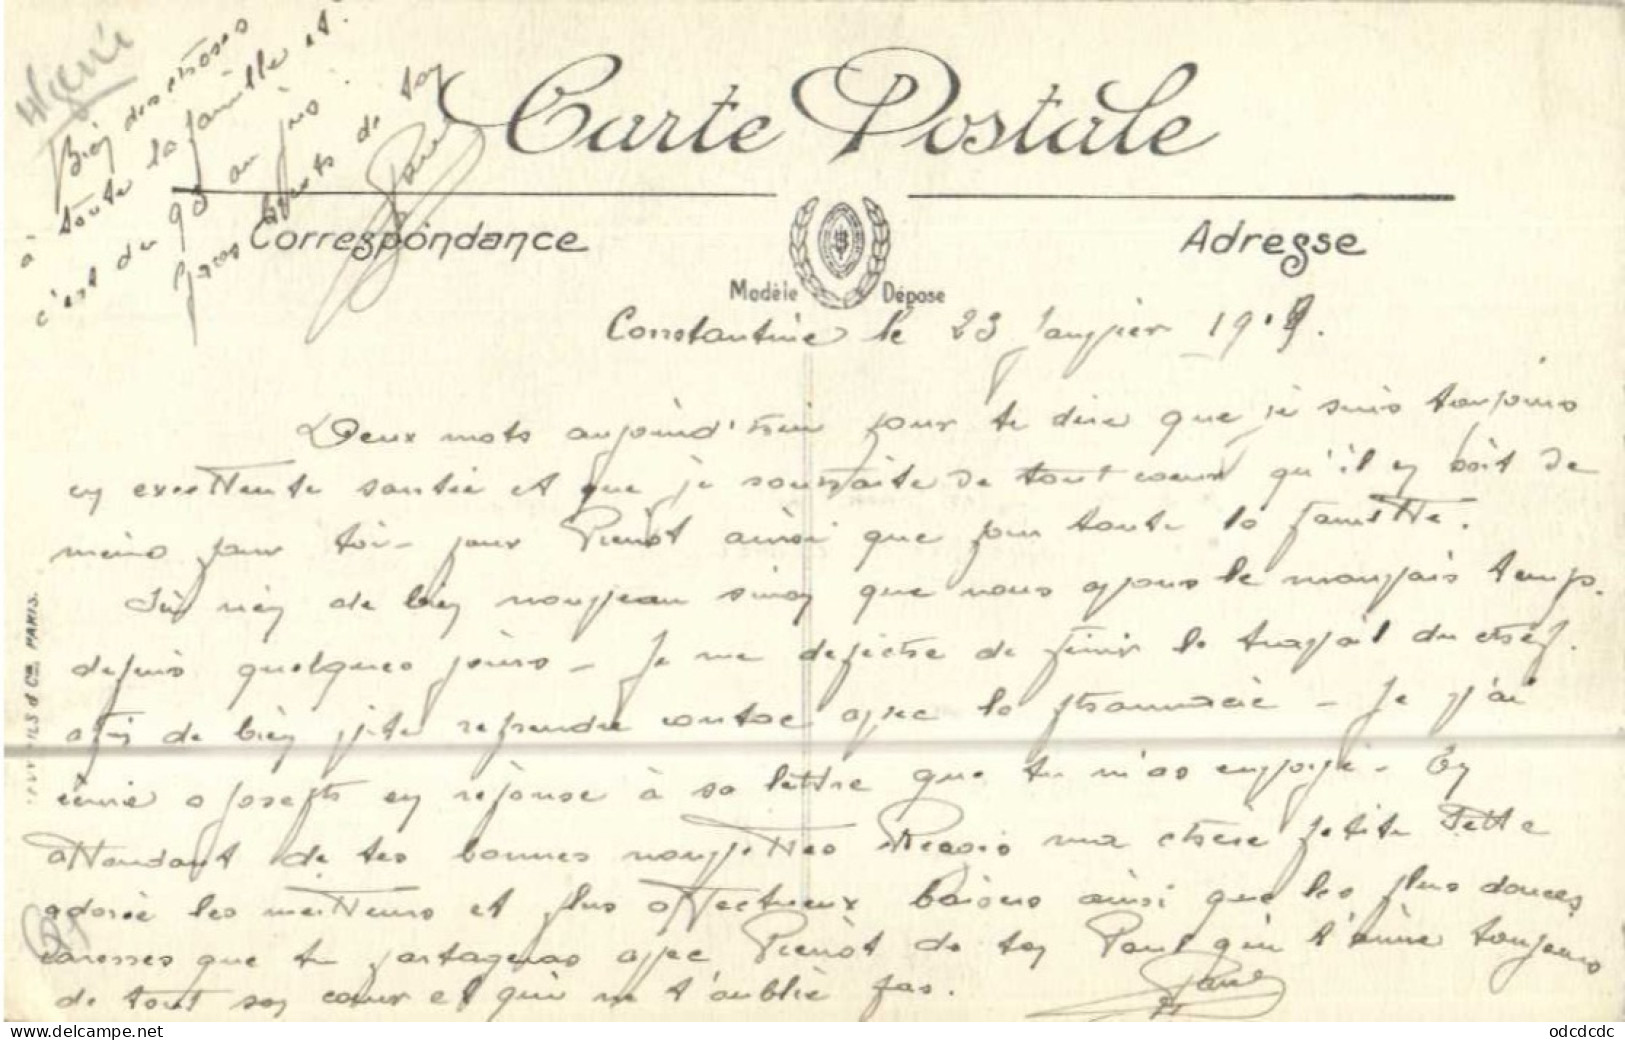 Algérie
Bien des choses
à toute la famille et
c'est du 93 au
Gros bécots de ton
Paul
Carte Postale
Correspondance
Adresse
Modèle Déposé
Constantine le 23 Janvier 1919.
Deux mots aujourd'hui pour te dire que je suis toujours
en excellente santé et que je souhaite de tout coeur qu'il en soit de
même pour toi - pour Pierrot ainsi que pour toute la famille.
Ici rien de bien nouveau sinon que nous avons le mauvais temps.
depuis quelques jours - Je me depeche de finir le travail du chef.
afin de bien vite reprendre contac avec la pharmacie - Je j'ai
écrit a Joseph en réponse à sa lettre que tu m'as envoyé - En
attendant de tes bonnes nouvelles Reçois ma chère petite
adorée les meilleurs et plus affectueux baisers ainsi que les plus douces
caresses que tu partageras avec Pierrot de ton Paul qui t'aime toujours
de tout son coeur et qui ne t'oublie pas.
Paul
ILS & Cie PARIS.
www.delcampe.net
odcdcdc